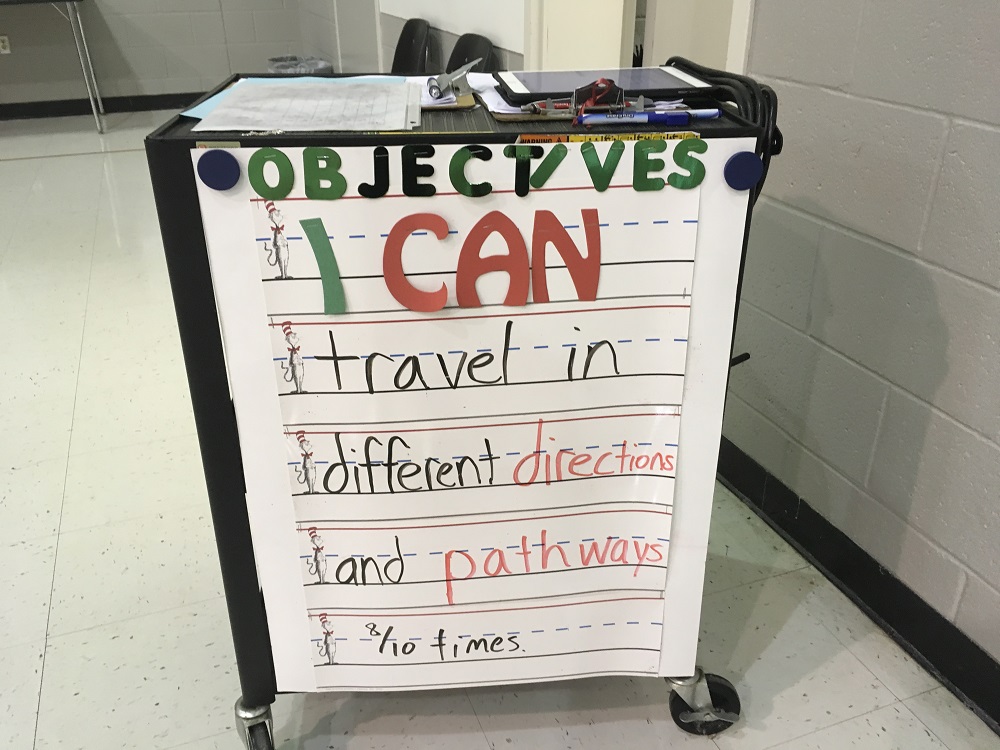 WARNING
OBJECTIVES
I CAN
travel in
different directions
and pathways
8/10 times.